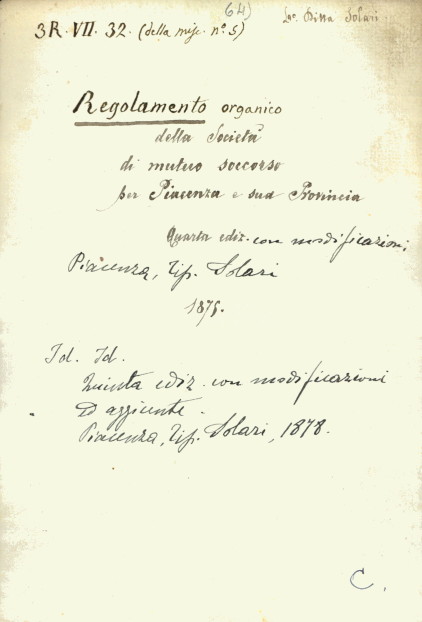 64)
3R. VII. 32. (della misc. nº. 5)
Regolamento organico
della Società
di mutuo soccorso
per Piacenza e sua Provincia
Quarta ediz. con modificazioni
Piacenza, Tip. Solari
Id. Id.
Quinta ediz. con modificazioni
ed aggiunte.
Piacenza, Tip. Solari, 1878.
C.